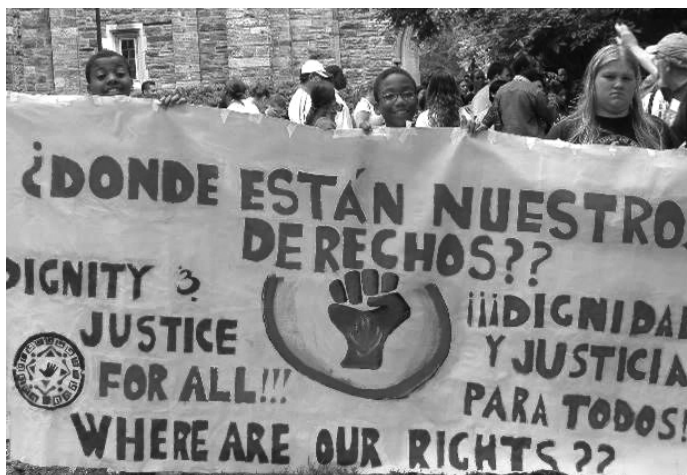 ¿DONDE ESTÁN NUESTROS
DERECHOS??
DIGNITY &
JUSTICE
FOR ALL!!!
¡¡¡DIGNIDAD
Y JUSTICIA
PARA TODOS!
WHERE ARE OUR RIGHTS??